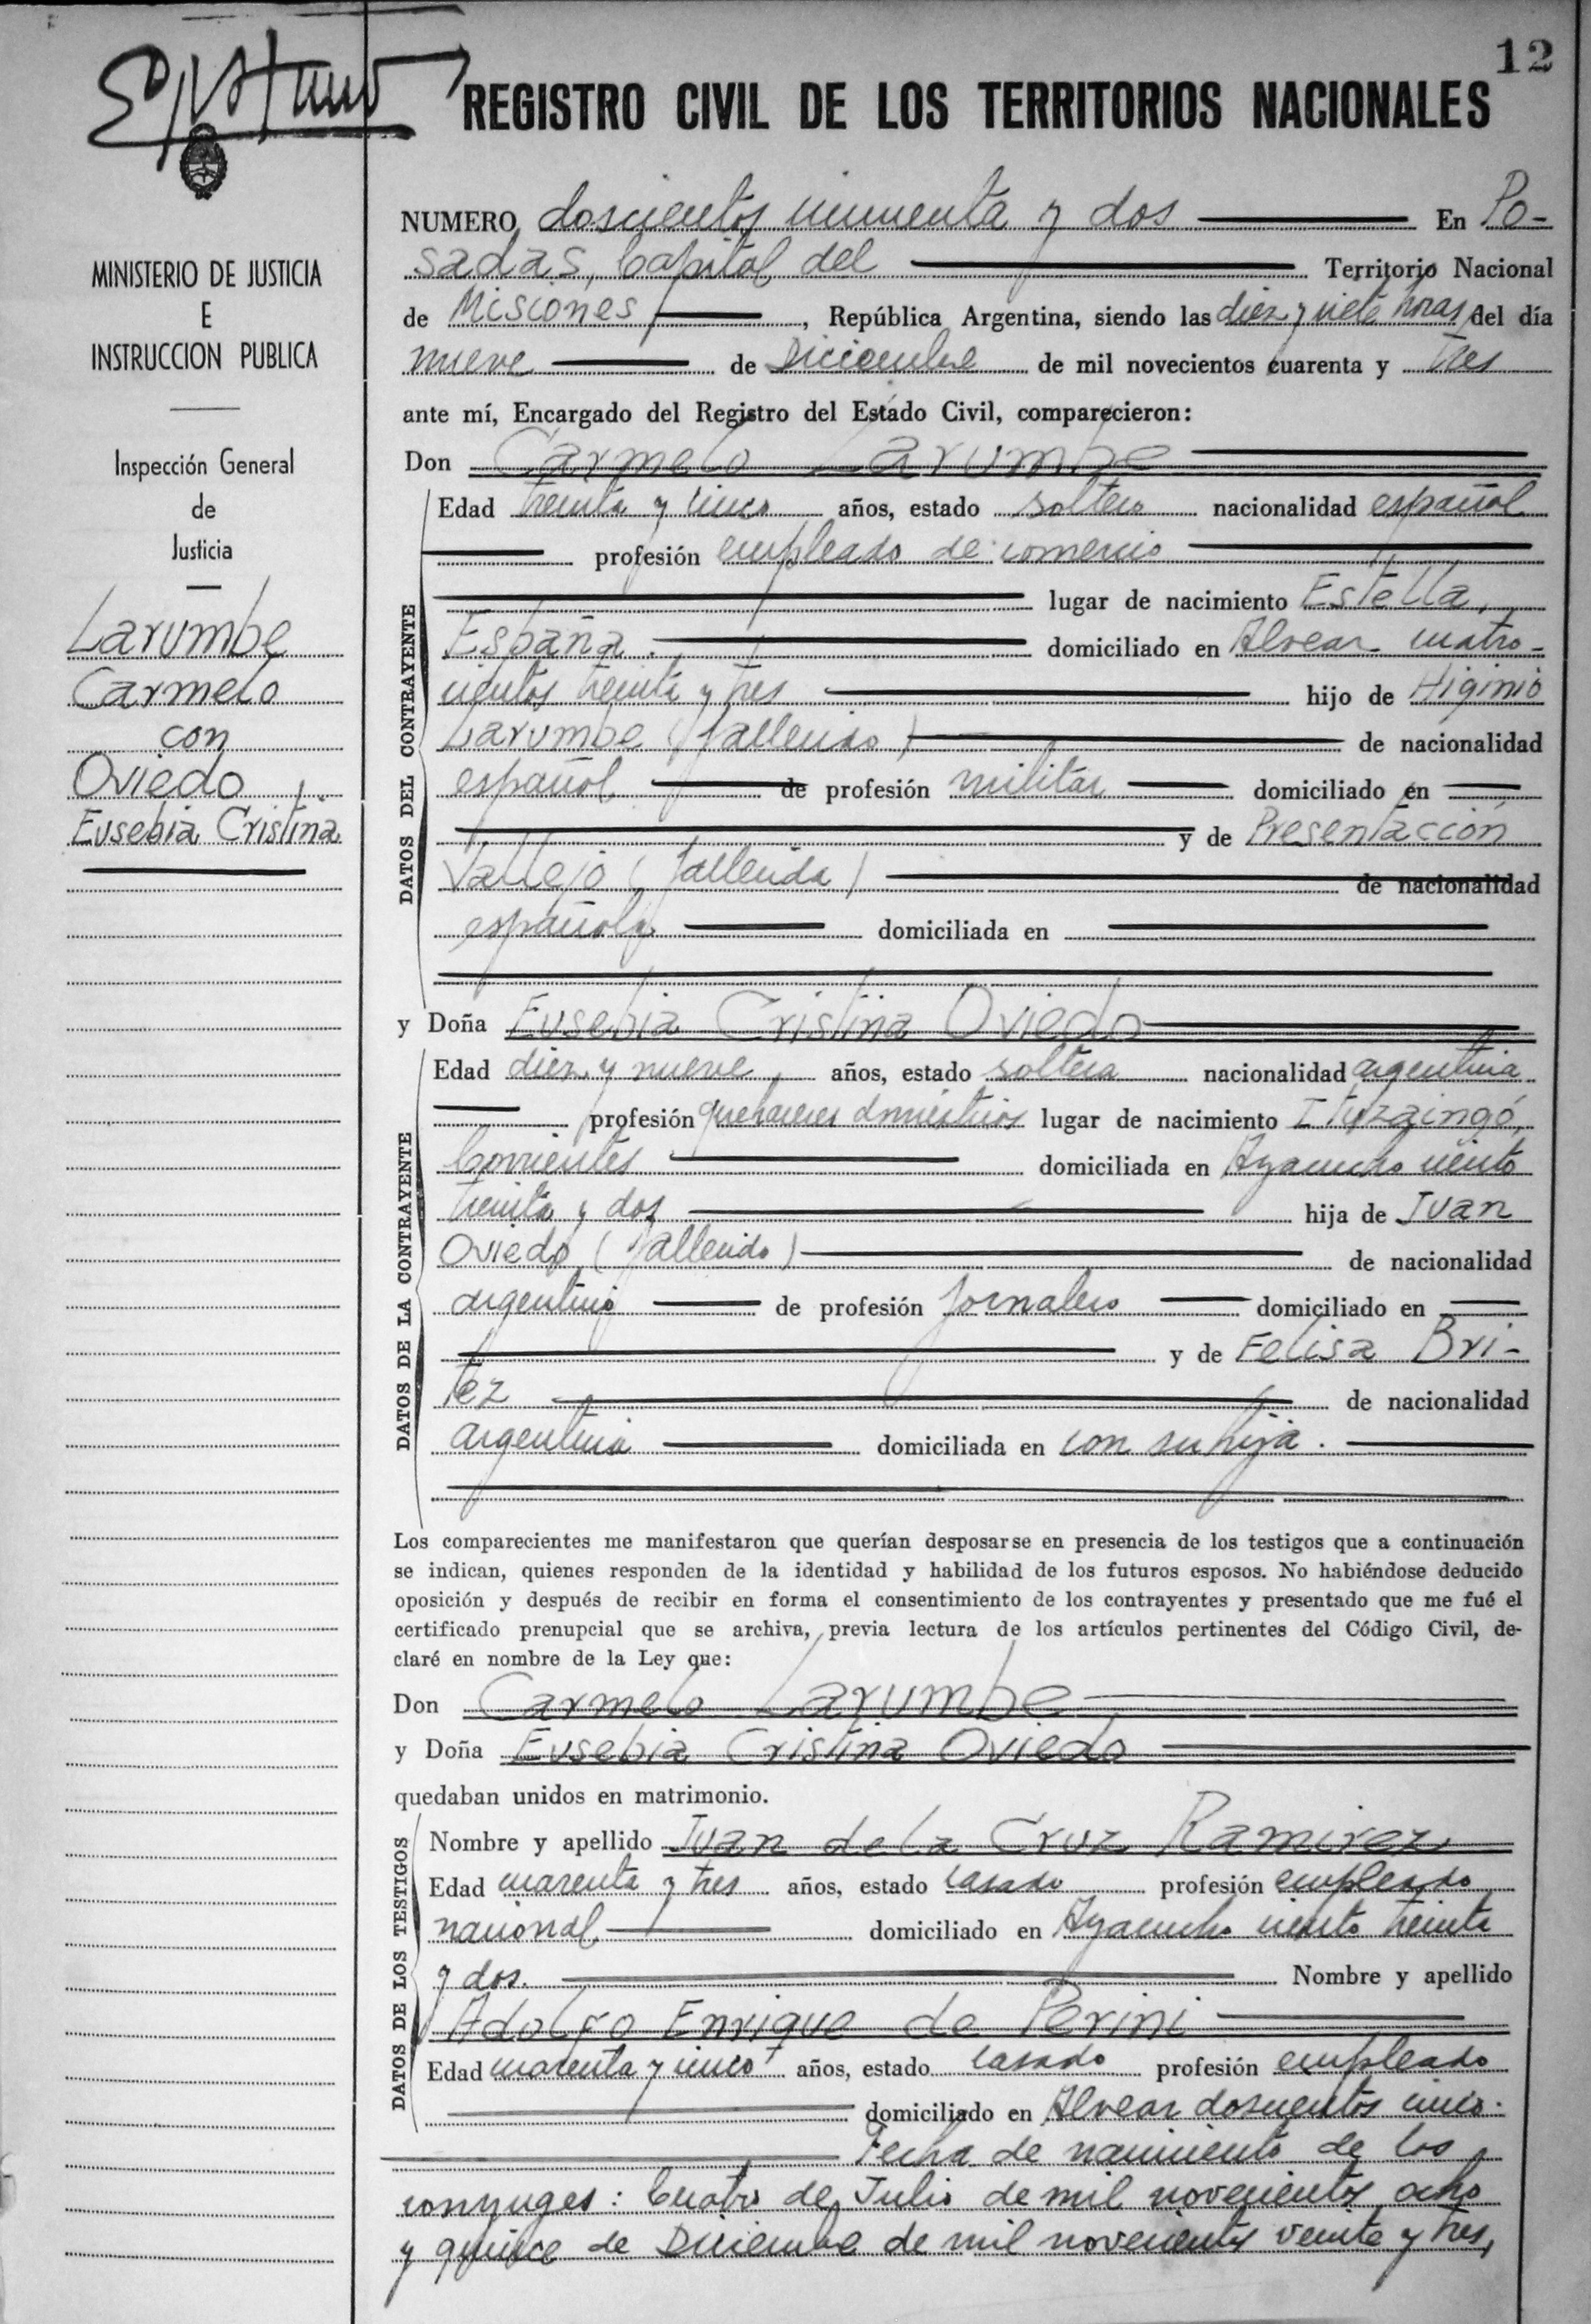 12
REGISTRO CIVIL DE LOS TERRITORIOS NACIONALES
MINISTERIO DE JUSTICIA
E
INSTRUCCION PUBLICA
Inspección General
de
Justicia
Larumbe
Carmelo
con
Oviedo
Eusebia Cristina
NUMERO doscientos cincuenta y dos En Po-
sadas, Capital del Territorio Nacional
de Misiones, República Argentina, siendo las diez y siete horas del día
nueve de Diciembre de mil novecientos cuarenta y tres
ante mí, Encargado del Registro del Estado Civil, comparecieron:
Don Carmelo Larumbe
DATOS DEL CONTRAYENTE
Edad treinta y cinco años, estado soltero nacionalidad español
profesión empleado de comercio
lugar de nacimiento Estella,
España. domiciliado en Alvear cuatro-
cientos treinta y tres hijo de Higinio
Larumbe (fallecido) de nacionalidad
español de profesión militar domiciliado en
y de Presentación
Vallejo (fallecida) de nacionalidad
española domiciliada en
y Doña Eusebia Cristina Oviedo
DATOS DE LA CONTRAYENTE
Edad diez y nueve años, estado soltera nacionalidad argentina
profesión quehaceres domésticos lugar de nacimiento Ituzaingó,
Corrientes domiciliada en Ayacucho ciento
treinta y dos hija de Juan
Oviedo (fallecido) de nacionalidad
argentino de profesión jornalero domiciliado en
y de Felisa Bri-
tez de nacionalidad
argentina domiciliada en con su hija.
Los comparecientes me manifestaron que querían desposarse en presencia de los testigos que a continuación
se indican, quienes responden de la identidad y habilidad de los futuros esposos. No habiéndose deducido
oposición y después de recibir en forma el consentimiento de los contrayentes y presentado que me fué el
certificado prenupcial que se archiva, previa lectura de los artículos pertinentes del Código Civil, de-
claré en nombre de la Ley que:
Don Carmelo Larumbe
y Doña Eusebia Cristina Oviedo
quedaban unidos en matrimonio.
DATOS DE LOS TESTIGOS
Nombre y apellido Juan de la Cruz Ramirez
Edad cuarenta y tres años, estado casado profesión empleado
nacional domiciliado en Ayacucho ciento treinta
y dos. Nombre y apellido
Adolfo Enrique de Perini
Edad cuarenta y cinco años, estado casado profesión empleado
domiciliado en Alvear doscientos cinco.
Fecha de nacimiento de los
conyuges: Cuatro de Julio de mil novecientos ocho
y quince de Diciembre de mil novecientos veinte y tres,